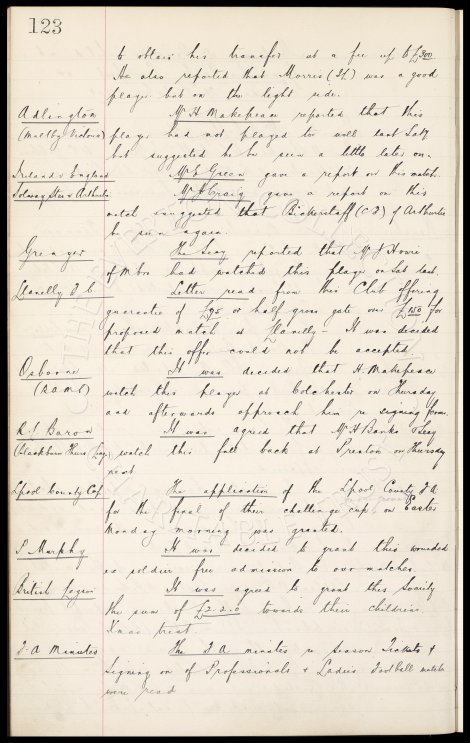 123
to obtain his transfer at a fee up to £300.
He also reported that Morris (I.L) was a good
player but on the light side.
Adlington
Mr H Makepeace reported that this
(Maltby Victoria)
player had not played so well last Saty
but suggested he be seen a little later on.
Ireland v England
Mr E Green gave a report on this match.
Solway Star v Arthurlie
Mr J Craig gave a report on this
match suggested that Bickerstaff (C.H) of Arthurlie
be seen again.
The Secy reported that Mr J Howie
of M'bro had watched this player on Sat last.
Llanelly F.C
Letter read from this Club offering
guarantee of £75 or half gross gate over £150 for
proposed match at Llanelly - It was decided
that this offer could not be accepted.
Osborne
It was decided that H. Makepeace
(R.A.M.C)
watch this player at Colchester on Thursday
and afterwards approach him re signing form.
R.S. Baron
It was agreed that Mr H Banks & Secy
(Blackburn Thurs. Lge)
watch this full back at Preston on Thursday
next
Lpool County Cup
The application of the Lpool County F.A
for the final of their challenge cup on Easter
Monday morning was granted.
P Murphy
It was decided to grant this wounded
ex soldier free admission to our matches.
British Legion
It was agreed to grant this Society
the sum of £2-2-0 towards their childrens
Xmas treat.
F-A Minutes
The F A minutes re Season Tickets &
Signing on of Professionals & Ladies Football matches
were read